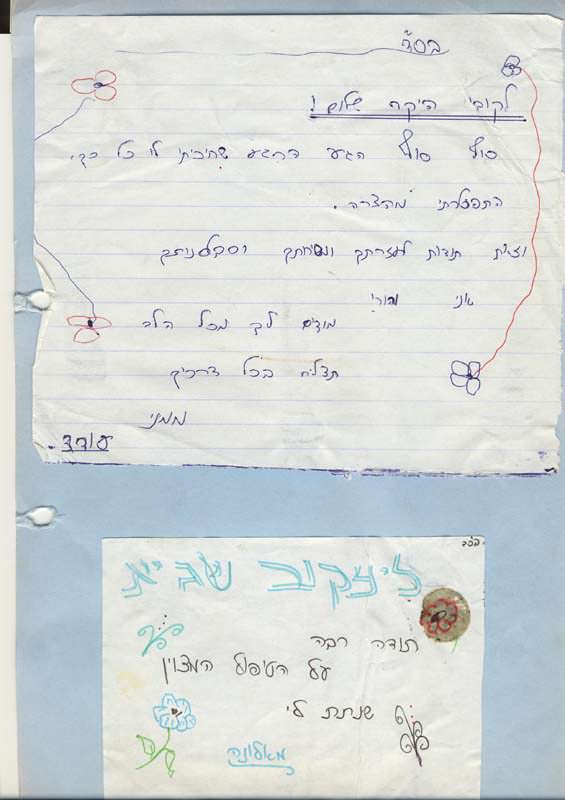 בסד
לקובי היקר שלום!
סוף סוף הגיע הרגע שחיכיתי לו כל כך,
התפטרתי מהצרה.
וזאת תודות לעזרתך וסבלנותך
אני והורי
מודים לך מכל הלב
תצליח בכל דרכיך
ממני
עודד.
ליעקוב שגיא
תודה רבה
על הטיפול המצוין
שנתת לי
מאלינה